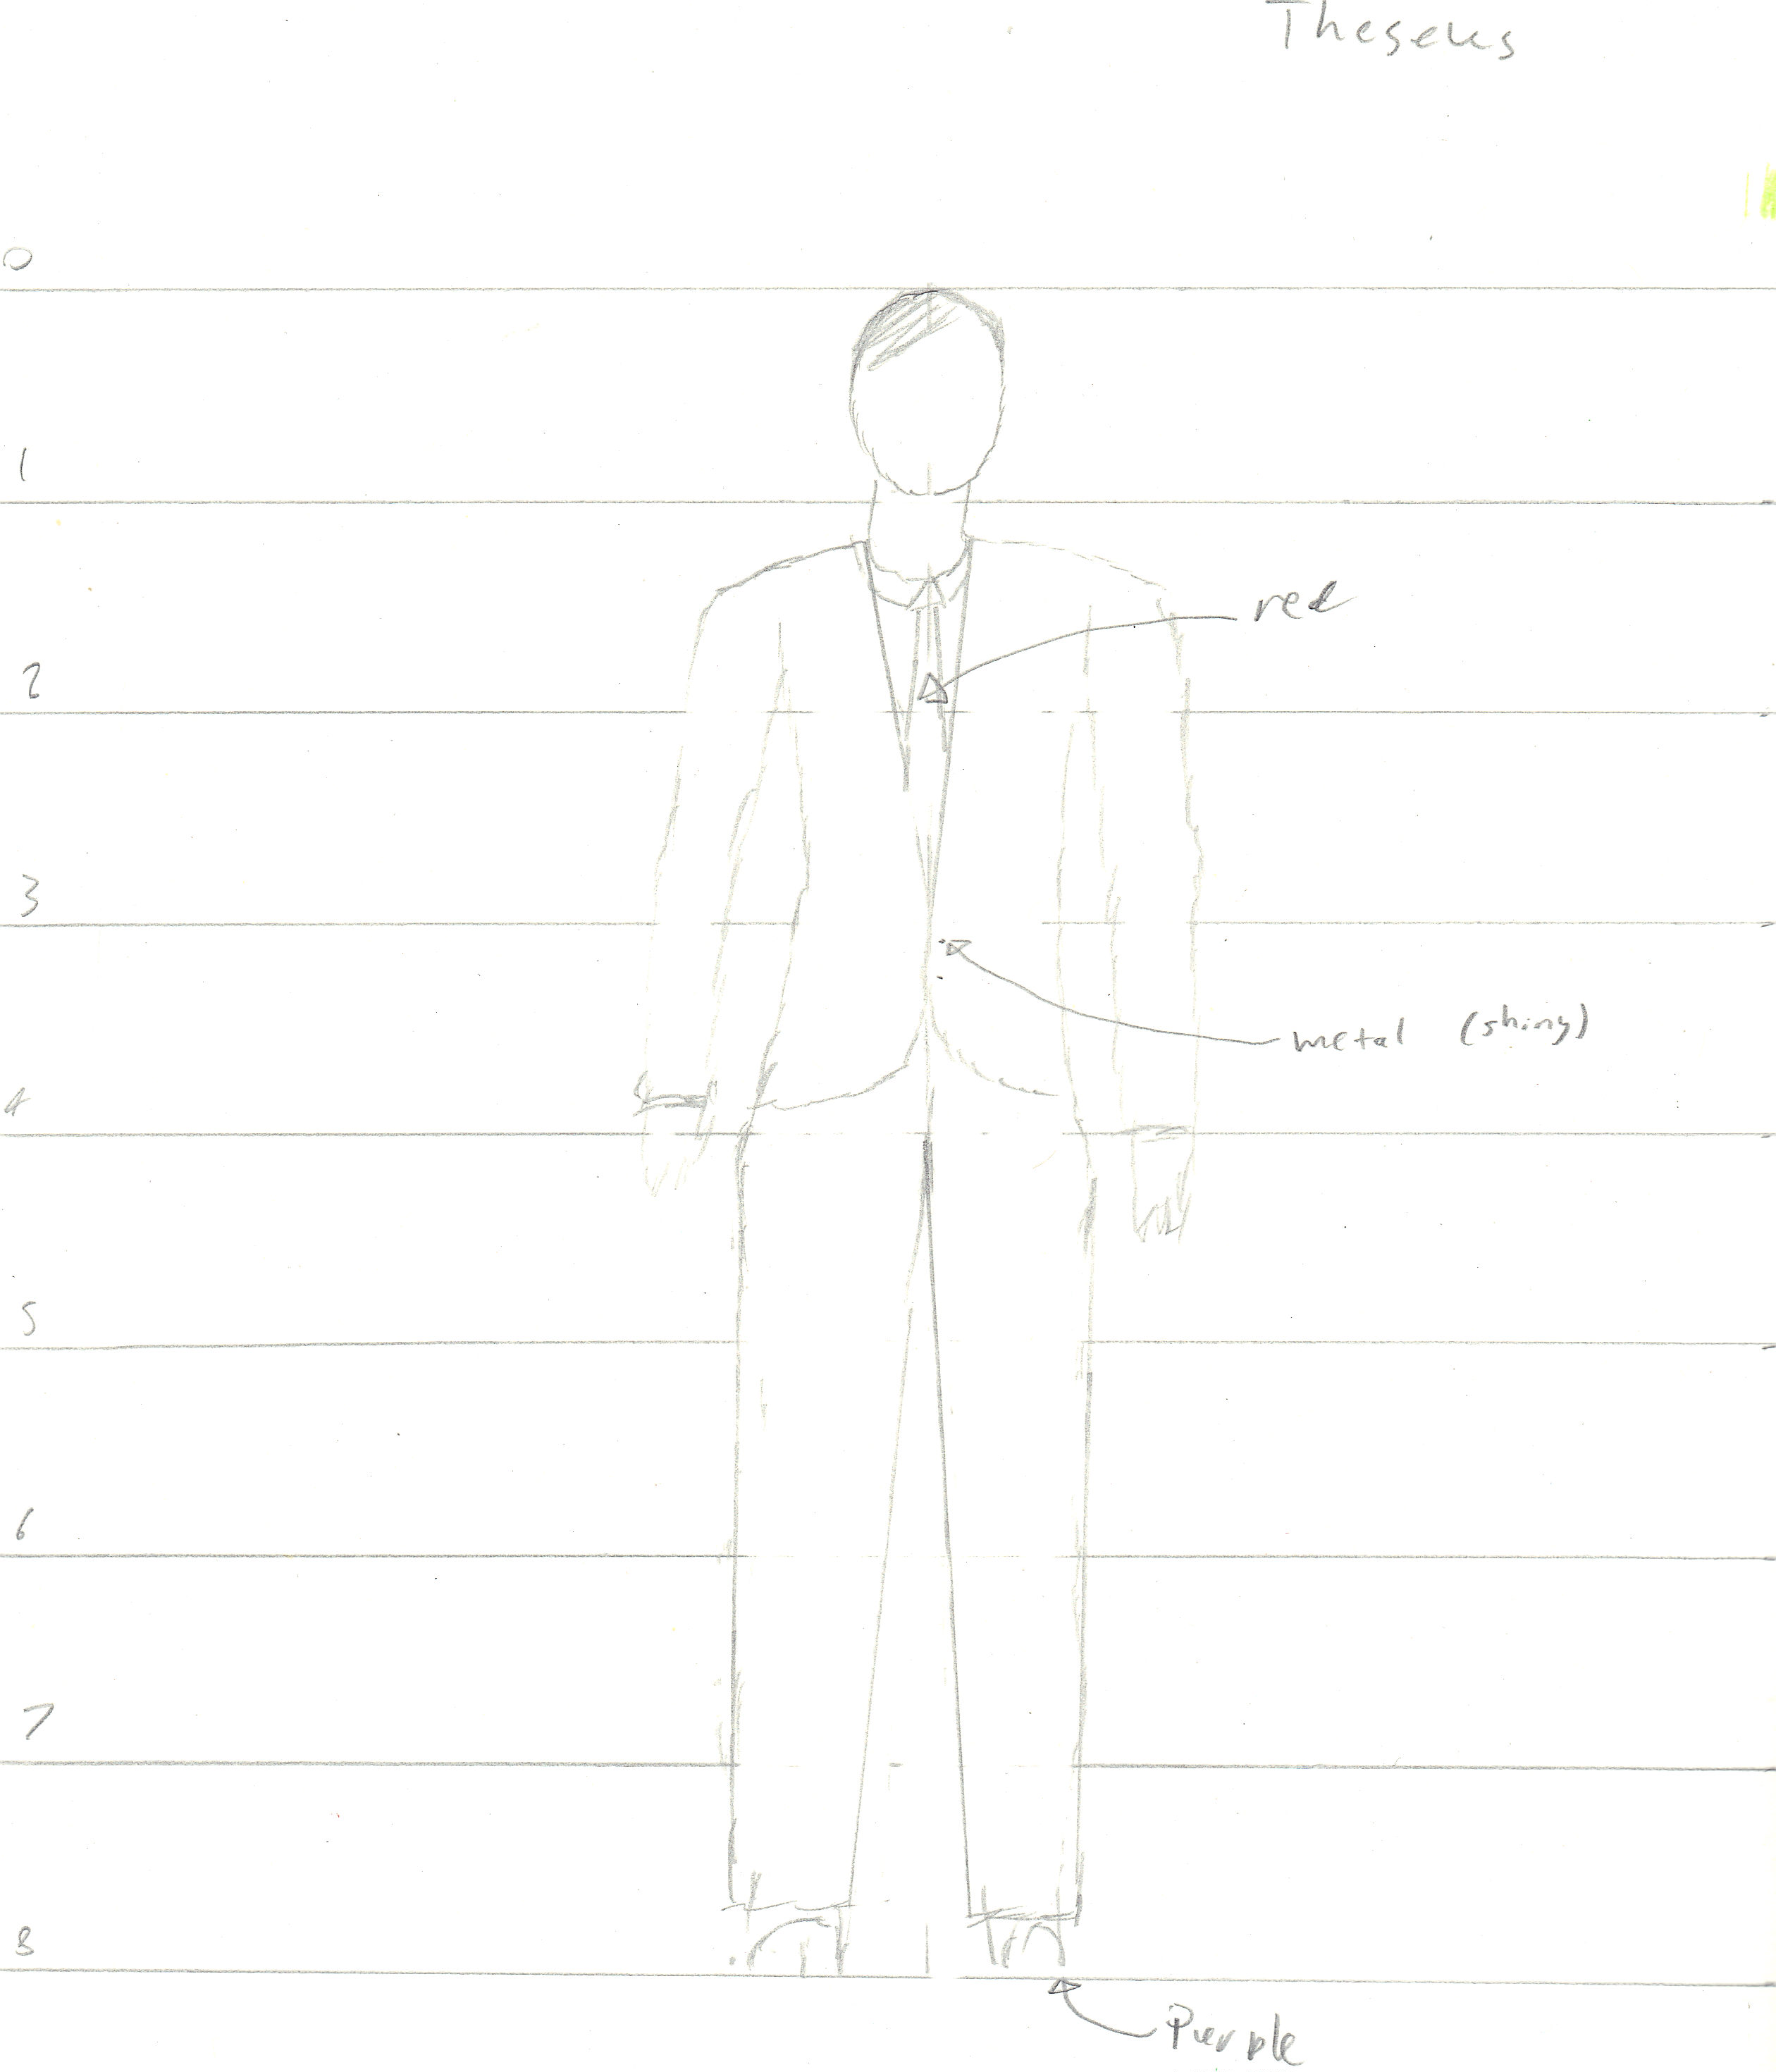 Theseus
0
1
red
2
3
metal (shiny)
4
5
6
7
8
Purple